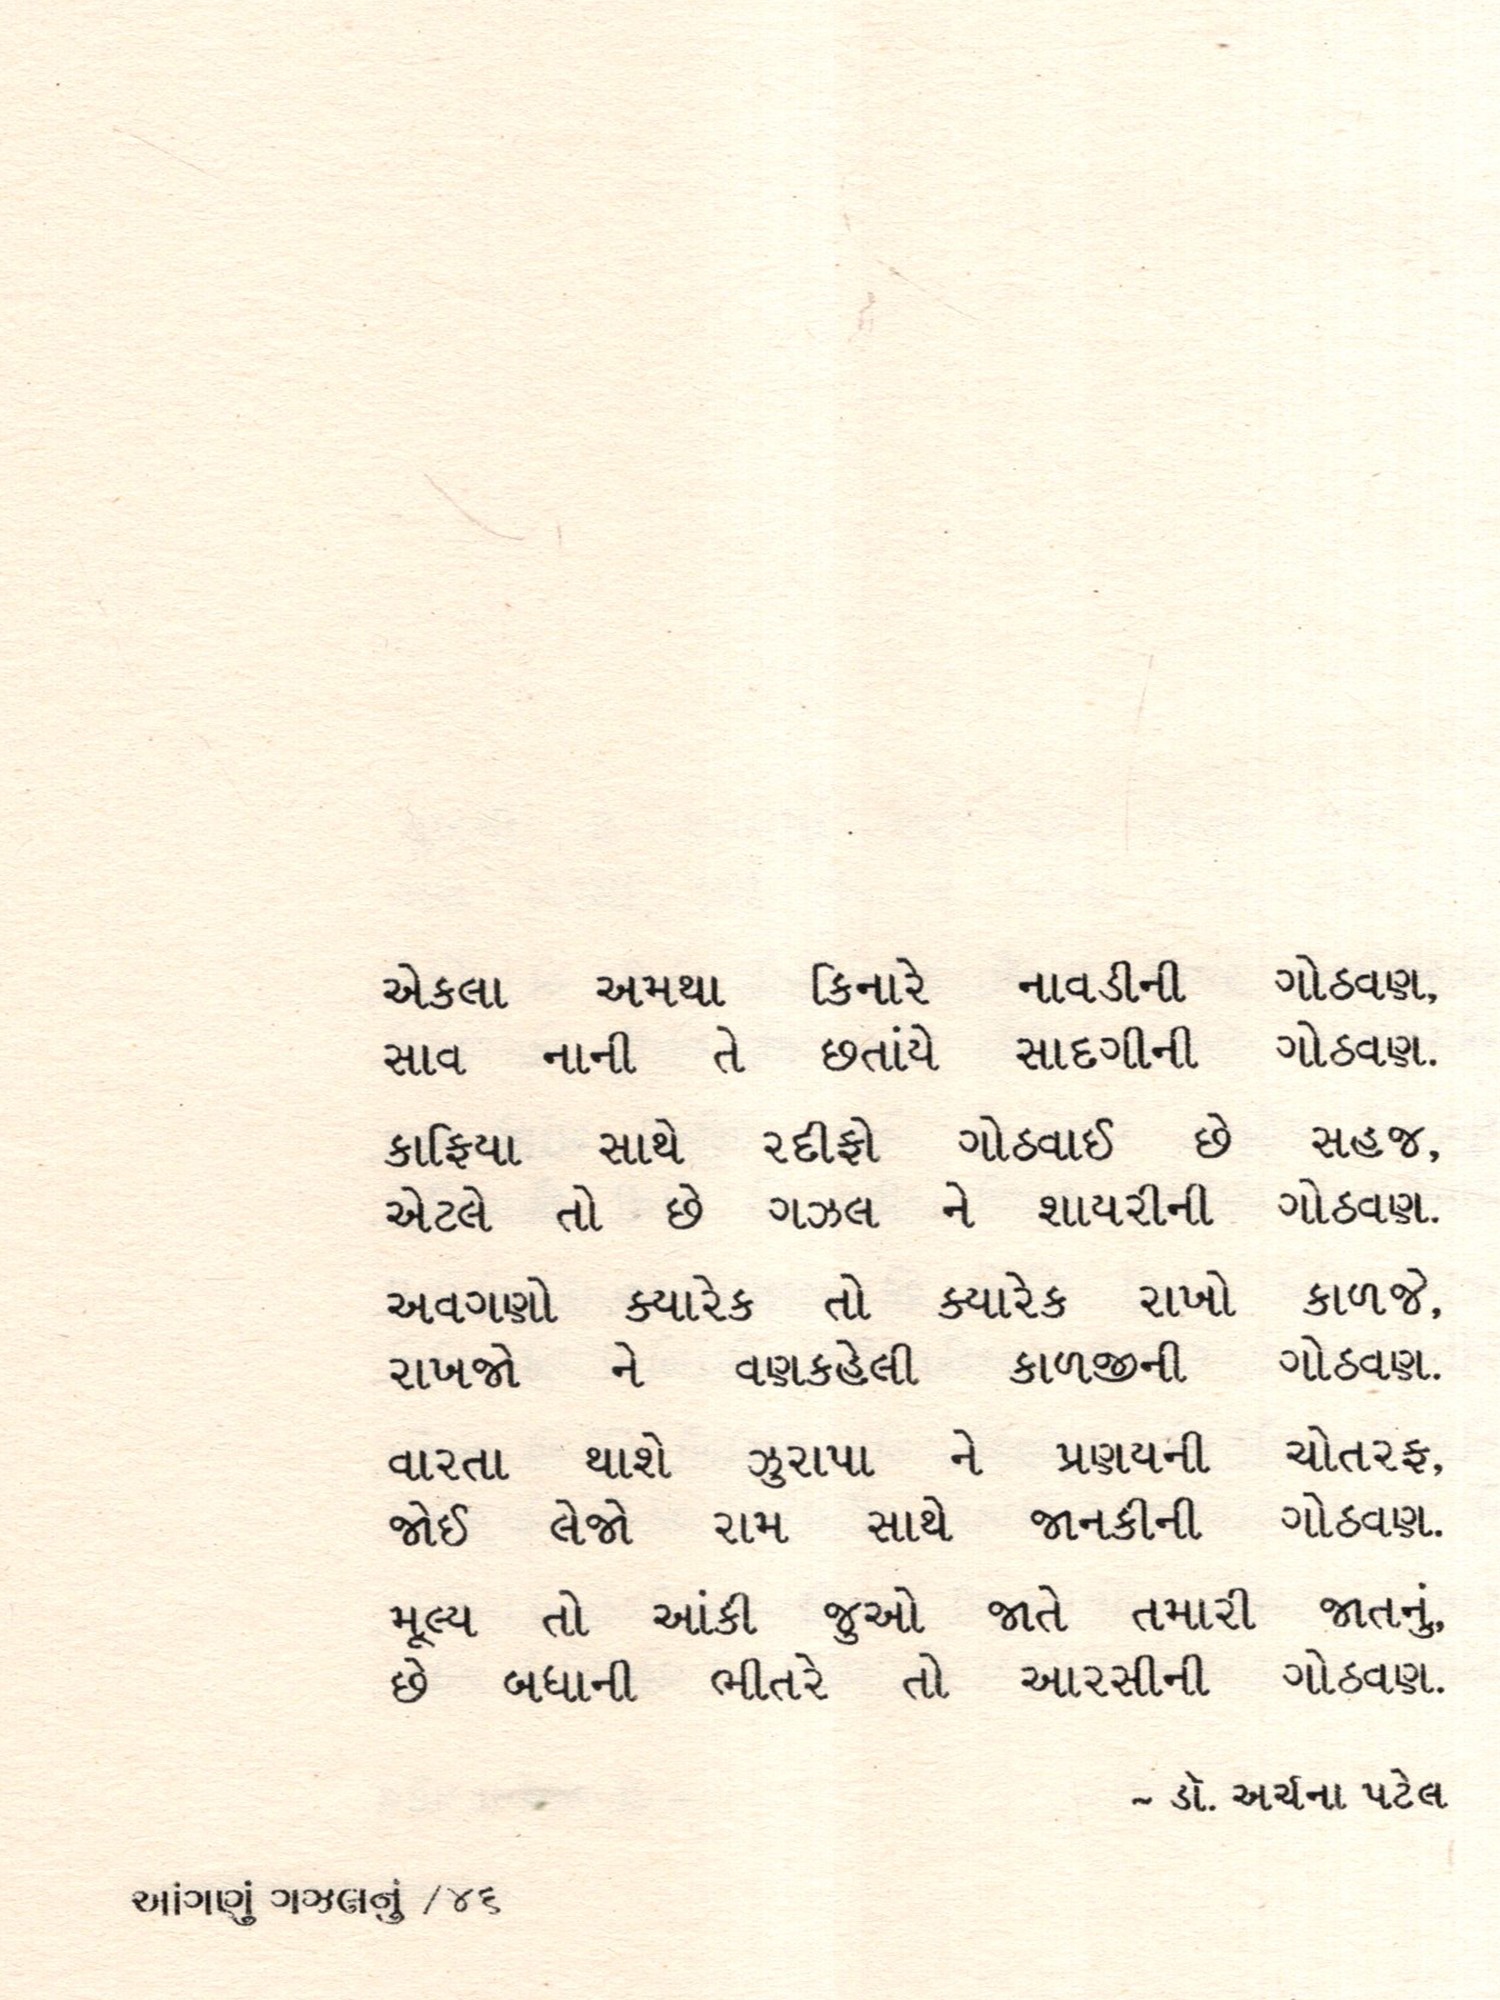 એકલા અમથા કિનારે નાવડીની ગોઠવણ,
સાવ નાની તે છતાંયે સાદગીની ગોઠવણ.
કાફિયા સાથે રદીફો ગોઠવાઈ છે સહજ,
એટલે તો છે ગઝલ ને શાયરીની ગોઠવણ.
અવગણો ક્યારેક તો ક્યારેક રાખો કાળજે,
રાખજો ને વણકહેલી કાળજીની ગોઠવણ.
વારતા થાશે ઝુરાપા ને પ્રણયની ચોતરફ,
જોઈ લેજો રામ સાથે જાનકીની ગોઠવણ.
મૂલ્ય તો આંકી જુઓ જાતે તમારી જાતનું,
છે બધાની ભીતરે તો આરસીની ગોઠવણ.
~ ડૉ. અર્ચના પટેલ
આંગણું ગઝલનું /૪૬